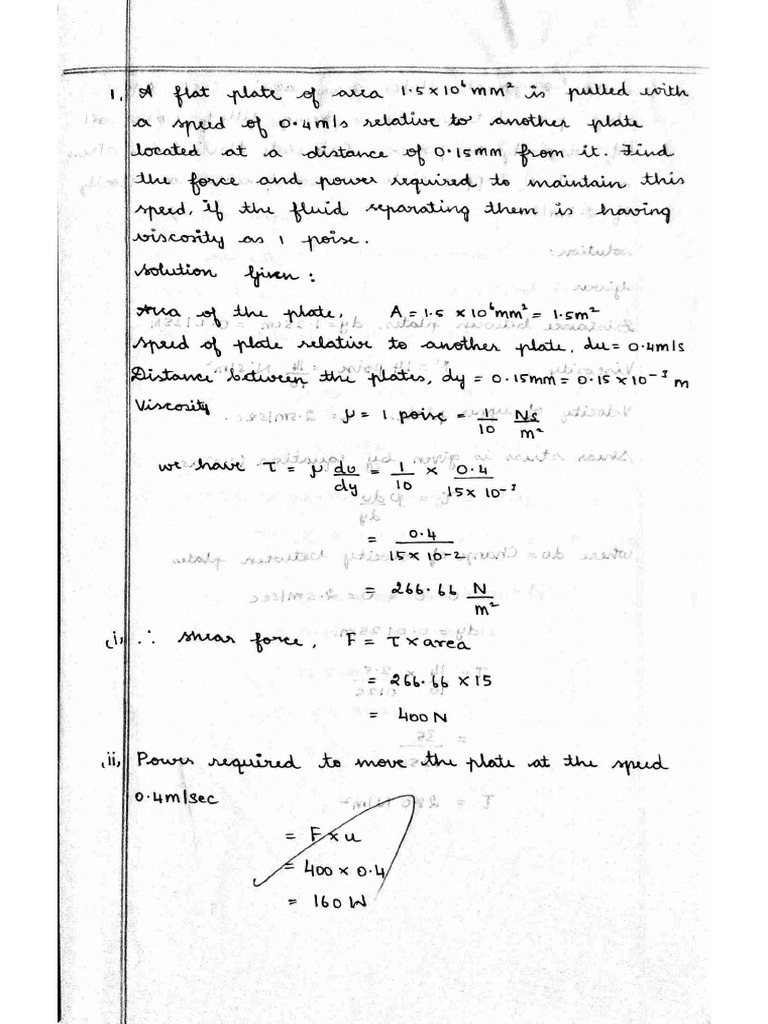 1. A flat plate of area 1.5 x 10⁶ mm² is pulled with
a speed of 0.4 m/s relative to another plate
located at a distance of 0.15mm from it. Find
the force and power required to maintain this
speed, if the fluid separating them is having
viscosity as 1 poise.
Solution Given:
Area of the plate, A = 1.5 x 10⁶ mm² = 1.5m²
speed of plate relative to another plate, du = 0.4m/s
Distance between the plates, dy = 0.15mm = 0.15 x 10⁻³ m
Viscosity μ = 1 poise = 1/10 Ns/m²
we have τ = μ du/dy = 1/10 x 0.4/.15 x 10⁻³
= 0.4/15 x 10-2
= 266.66 N/m²
(i) ∴ shear force, F = τ x area
= 266.66 x 15
= 400 N
(ii) Power required to move the plate at the speed
0.4m/sec
= F x u
= 400 x 0.4
= 160 W